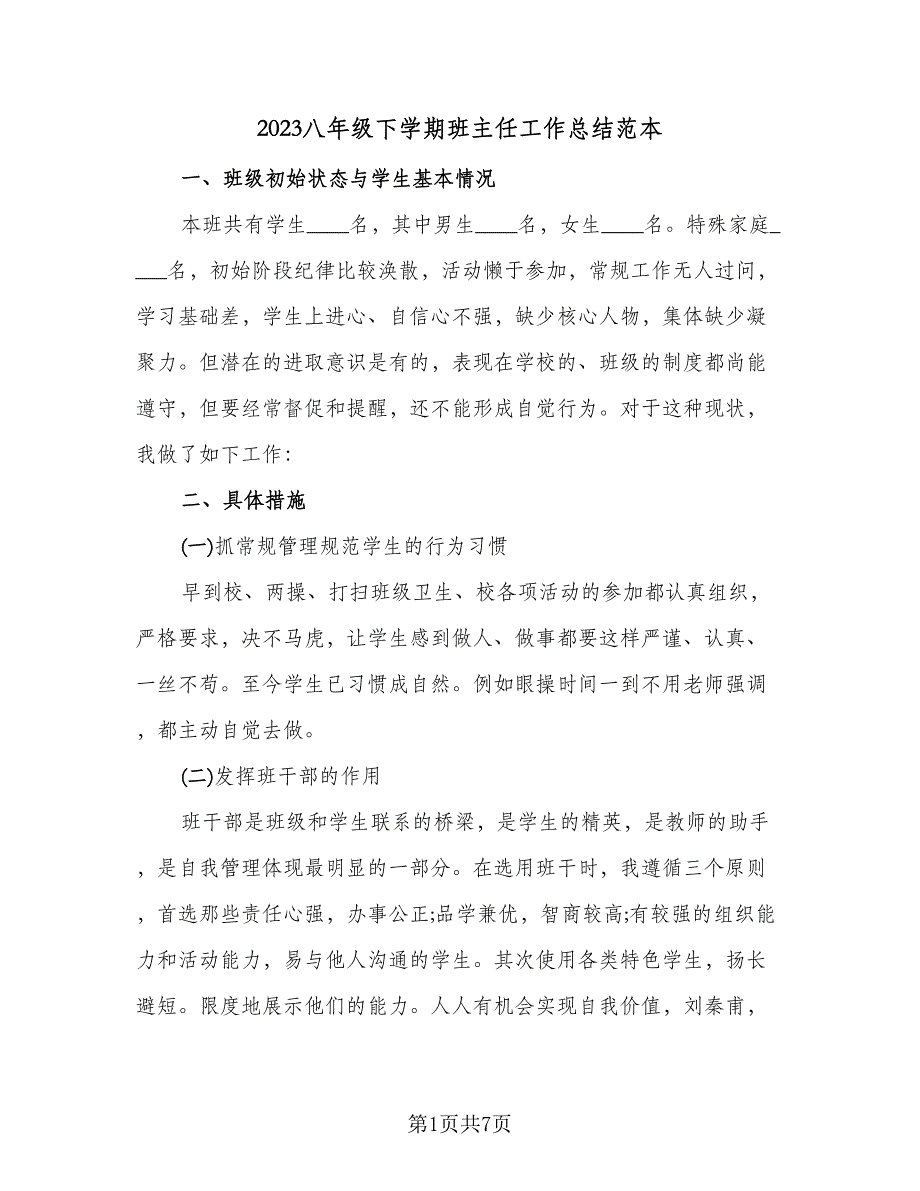 2023八年级下学期班主任工作总结范本
一、班级初始状态与学生基本情况
本班共有学生____名，其中男生____名，女生____名。特殊家庭_
___名，初始阶段纪律比较涣散，活动懒于参加，常规工作无人过问，
学习基础差，学生上进心、自信心不强，缺少核心人物，集体缺少凝
聚力。但潜在的进取意识是有的，表现在学校的、班级的制度都尚能
遵守，但要经常督促和提醒，还不能形成自觉行为。对于这种现状，
我做了如下工作：
二、具体措施
(一)抓常规管理规范学生的行为习惯
早到校、两操、打扫班级卫生、校各项活动的参加都认真组织，
严格要求，决不马虎，让学生感到做人、做事都要这样严谨、认真、
一丝不苟。至今学生已习惯成自然。例如眼操时间一到不用老师强调
，都主动自觉去做。
(二)发挥班干部的作用
班干部是班级和学生联系的桥梁，是学生的精英，是教师的助手
，是自我管理体现最明显的一部分。在选用班干时，我遵循三个原则
，首选那些责任心强，办事公正;品学兼优，智商较高;有较强的组织能
力和活动能力，易与他人沟通的学生。其次使用各类特色学生，扬长
避短。限度地展示他们的能力。人人有机会实现自我价值，刘秦甫，
第1页共7页